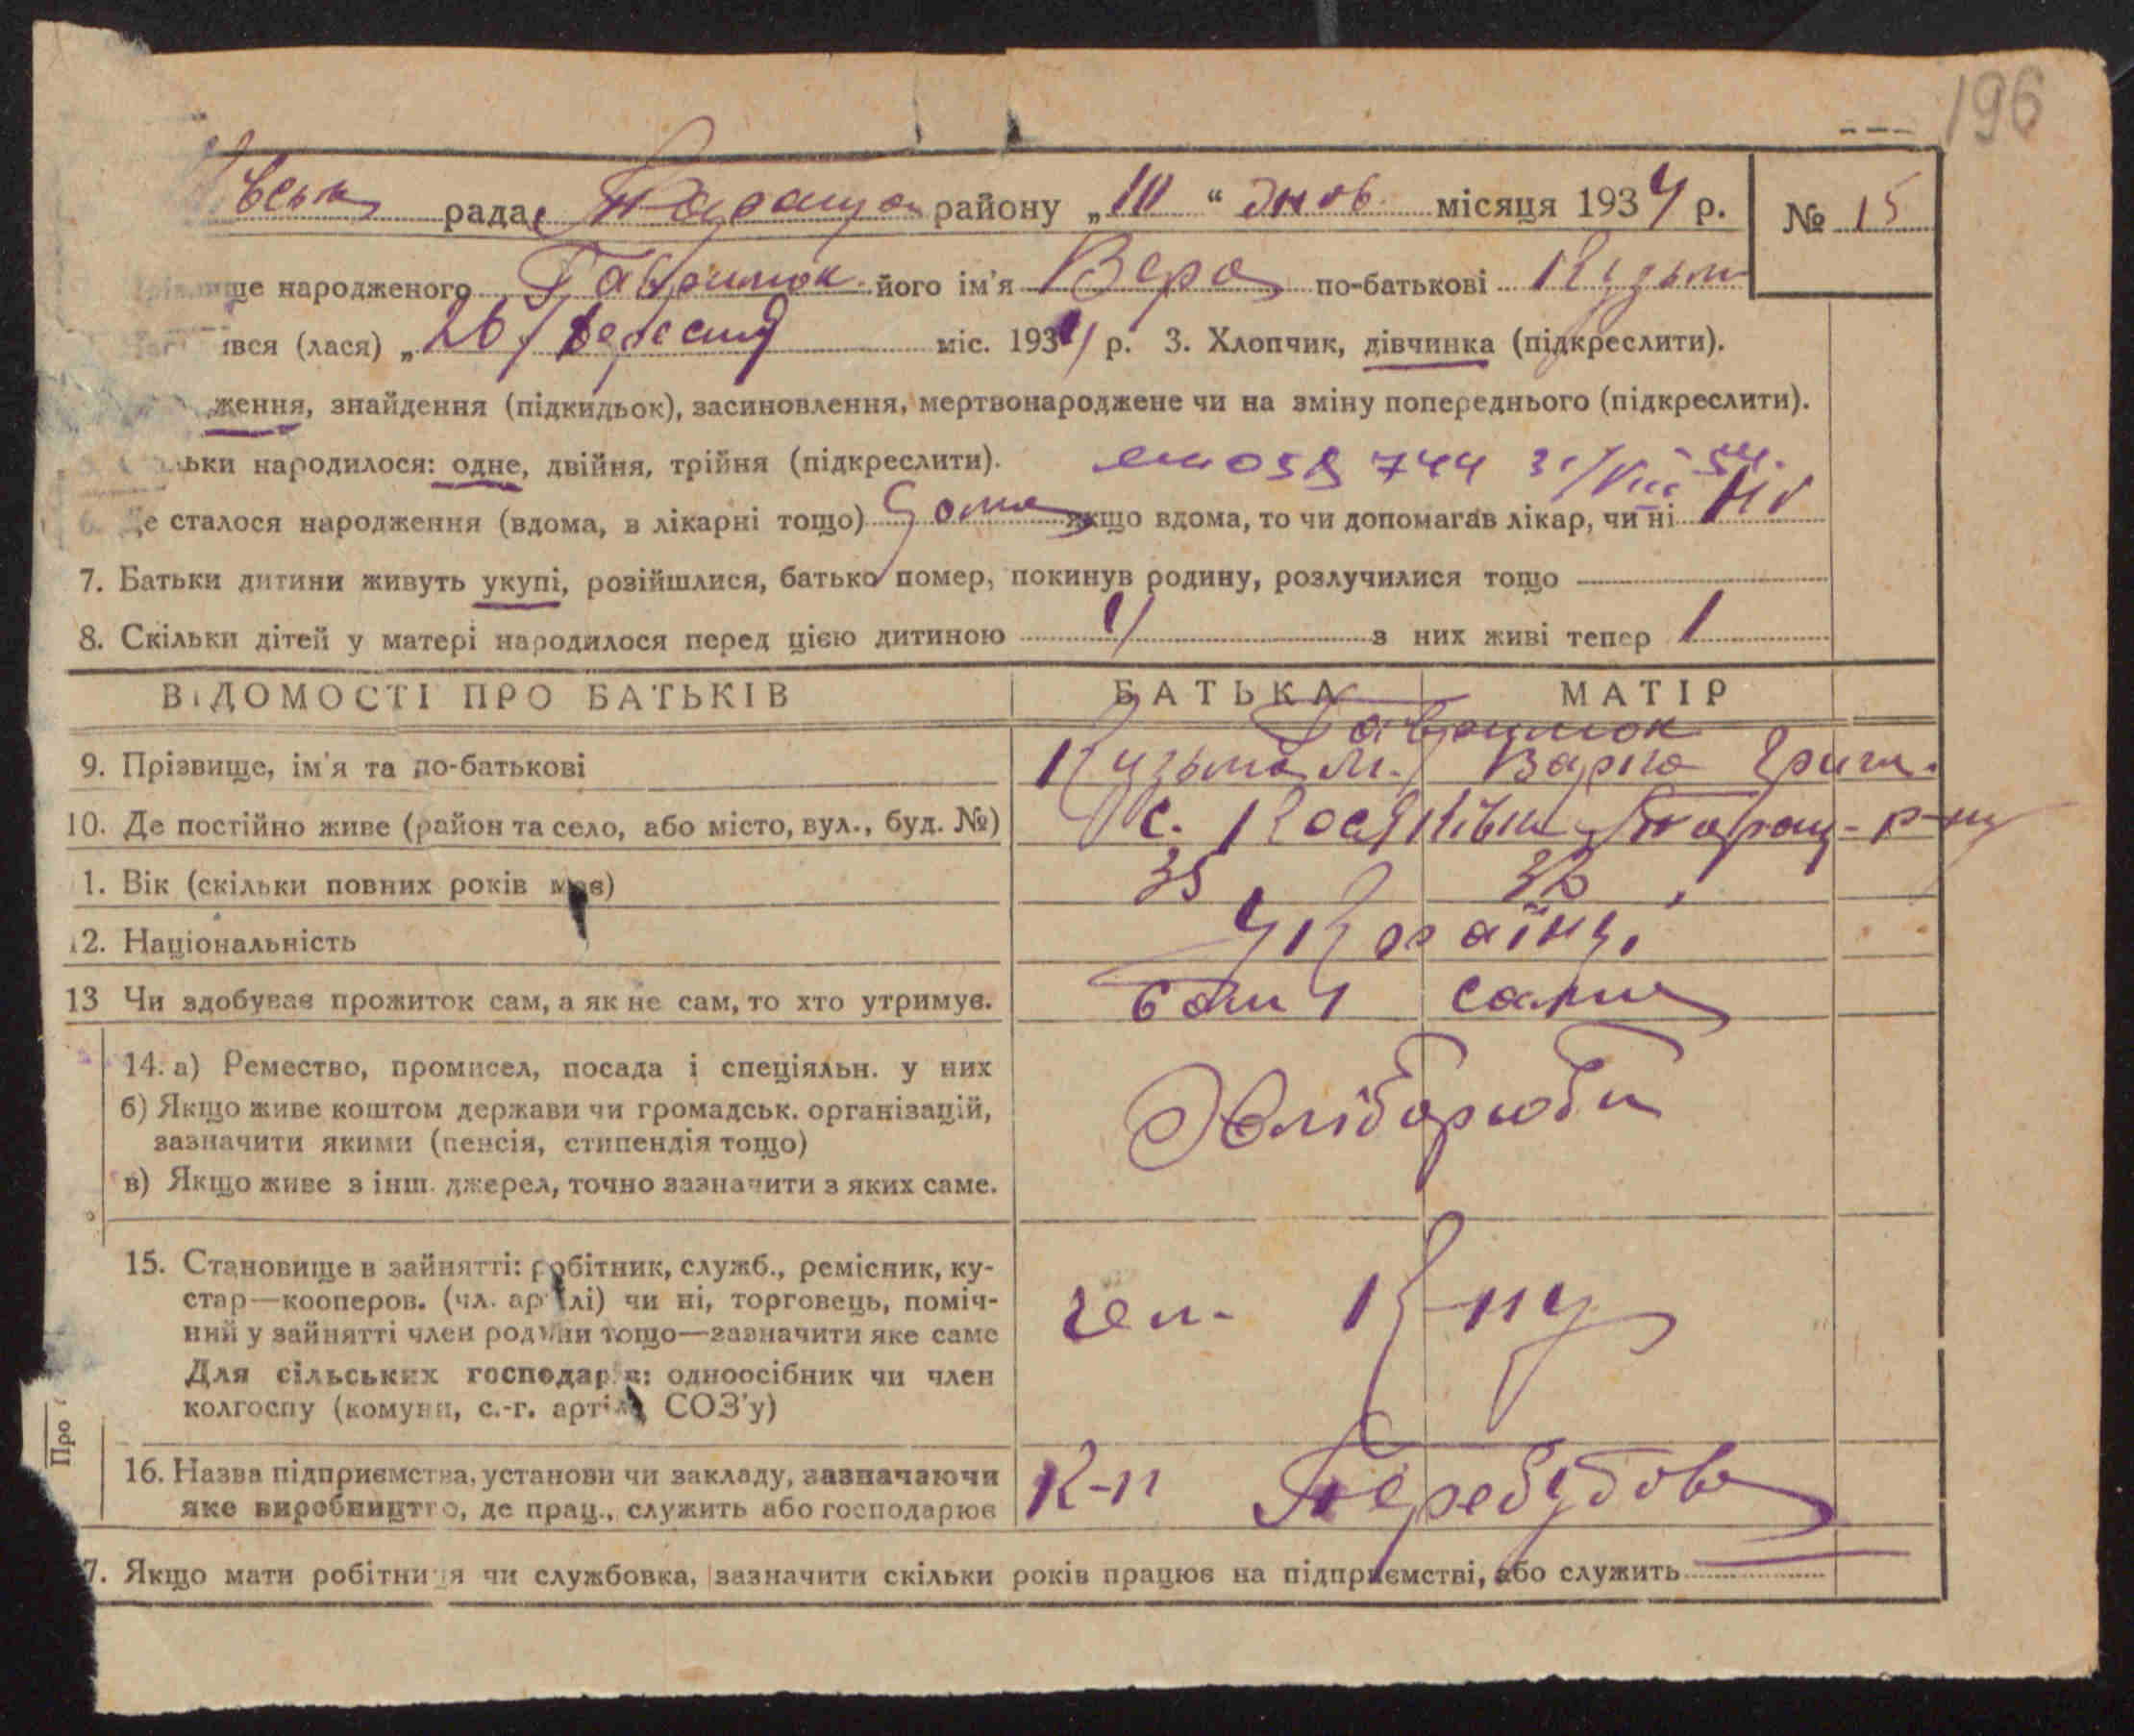 196
рада Таращан району „10“ жовт місяця 1934 р. № 15
ще народженого Гаврилюк його ім'я Вера по-батькові Кузьм
івся (лася) „26 вересня міс. 1934 р. 3. Хлопчик, дівчинка (підкреслити).
ження, знайдення (підкидьок), засиновлення, мертвонароджене чи на зміну попереднього (підкреслити).
ьки народилося: одне, двійня, трійня (підкреслити). 744 31/VIII 54.
6. Де сталося народження (вдома, в лікарні тощо) дома якщо вдома, то чи допомагав лікар, чи ні ні
7. Батьки дитини живуть укупі, розійшлися, батько помер, покинув родину, розлучилися тощо
8. Скільки дітей у матері народилося перед цією дитиною 4 з них живі тепер 1
ВІДОМОСТІ ПРО БАТЬКІВ БАТЬКА МАТІР
Гаврилюк
9. Прізвище, ім'я та по-батькові Кузьма М. Варка Григ.
10. Де постійно живе (район та село, або місто, вул., буд. №) с. Косяківка Таращ-р-ну
1. Вік (скільки повних років має) 35 32
12. Національність Українці
13 Чи здобуває прожиток сам, а як не сам, то хто утримує. сами
14. а) Ремество, промисел, посада і спеціяльн. у них Хлібороби
б) Якщо живе коштом держави чи громадськ. організацій,
зазначити якими (пенсія, стипендія тощо)
в) Якщо живе з інш. джерел, точно зазначити з яких саме.
15. Становище в зайнятті: робітник, служб., ремісник, ку-
стар—кооперов. (чл. артілі) чи ні, торговець, поміч- чл. К-пу
ний у зайнятті член родини тощо—зазначити яке саме
Для сільських господарів: одноосібник чи член
колгоспу (комуни, с.-г. артілі, СОЗ'у)
Про
16. Назва підприємства, установи чи закладу, зазначаючи К-п Перебудова
яке виробництво, де прац., служить або господарює
7. Якщо мати робітниця чи службовка, зазначити скільки років працює на підприємстві, або служить